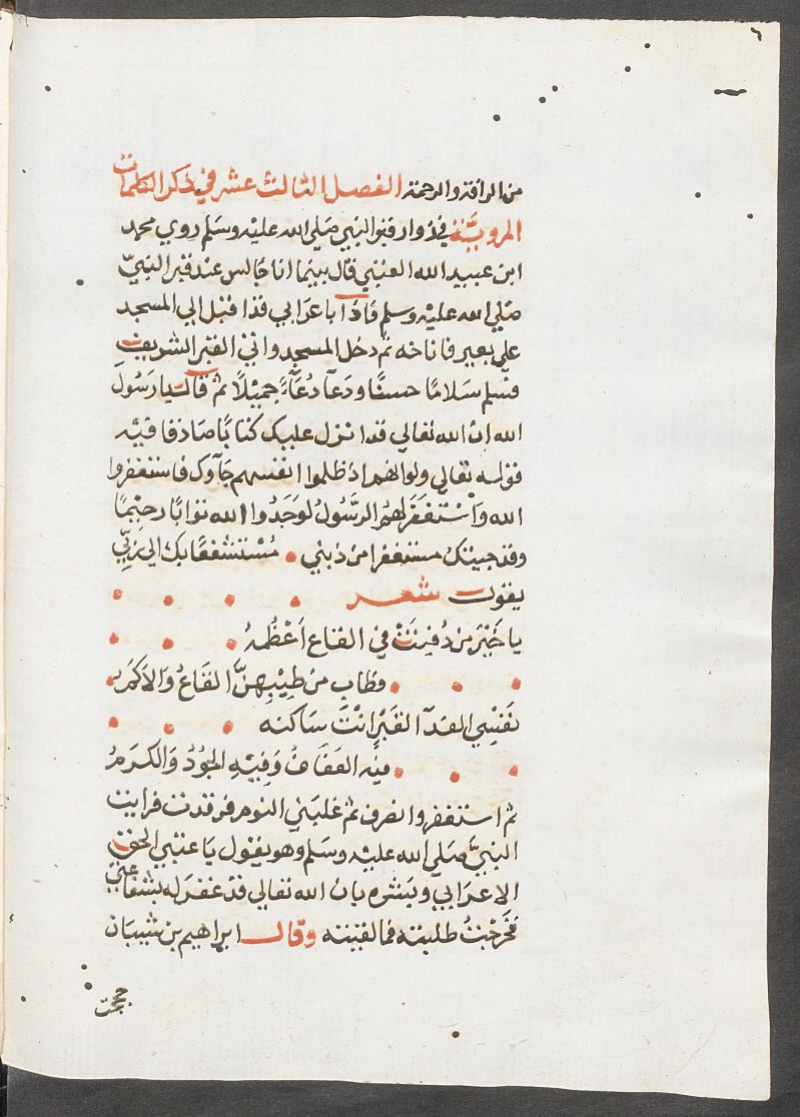 من الرافة والرحمة الفصل الثالث عشر في ذكر الكلمات
المروية في زوار قبر النبي صلي الله عليه وسلم روي محمد
ابن عبيد الله العتبي قال بينما انا جالس عند قبر النبي
صلي الله عليه وسلم فاذا باعرابي قد اقبل الي المسجد
علي بعير فاناخه ثم دخل المسجد واتي القبر الشريف
فسلم سلاما حسنا ودعا دعاء جميلا ثم قال يا رسول
الله ان الله تعالي قد انزل عليك كتابا صادقا فيه
قوله تعالي ولو انهم اذ ظلموا انفسهم جآوك فاستغفروا
الله وَاسْتَغفَرَ لهُمُ الرسُولُ لوَجَدُوا الله توابا رحيما
وقد جيتك مستغفرا من ذنبي مُسْتشفعًا بك الي ربي
يقول شعر
يا خَيْرَ مَن دُفِنَتْ في القاع اَعْظُمهُ
وطاب من طيْبِهِنَّ القَاعُ وَالاَكَمُ
نَفْسِي الفدآ القَبْر انتَ سَاكنه
فيْهِ العَفَافُ وَفِيْهِ الجُوْدُ وَالكَرَمُ
ثم استغفر وانصرف ثم غلبَني النوم فرقدت فرايت
النبيّ صَلي الله عليه وسلم وهو يقول يَا عتبي الحق
الاعرابي وبَشره بان الله تعالي قد غفر له بشفاعتي
فخرَجْتُ طلبته فما لقيته وقال ابراهيم بن شيبان
حججت